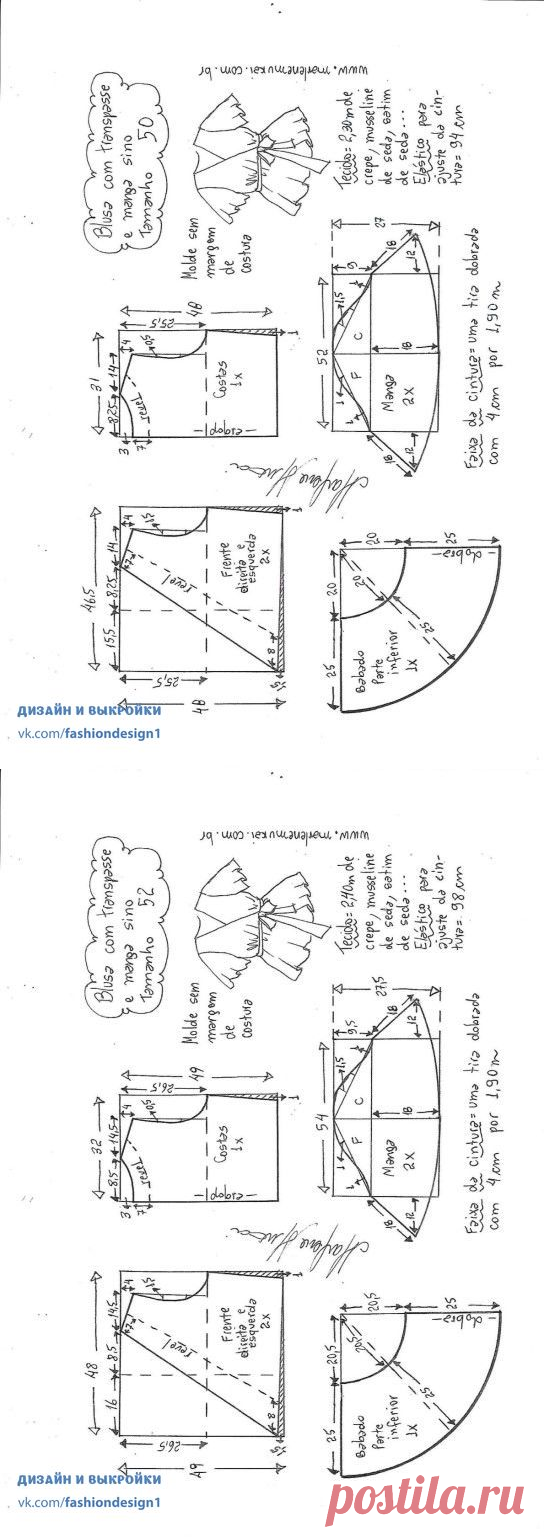 Blusa com Transpasse
e manga sino
Tamanho 50
www.marlenemukai.com.br
Molde sem
margem
de
costura
Tecido= 2,30m de
crepe, musseline
de seda, cetim
de seda...
Elástico para
ajuste da cin-
tura= 94 cm
46,5
15,5
8,25
14
4
7
1,5
revel
Frente
direita e
esquerda
2x
8
25,5
48
31
8,25
14
4
3
7
revel
Costas
1x
- dobra -
25,5
48
1
52
9
27
1,5
F
C
1
Manga
2x
18
18
18
12
12
Faixa da cintura= uma tira dobrada
com 4 cm por 1,90 m
20
25
20
25
20
25
- dobra -
Babado
parte
inferior
1x
ДИЗАЙН И ВЫКРОЙКИ
vk.com/fashiondesign1
Blusa com Transpasse
e manga sino
Tamanho 52
www.marlenemukai.com.br
Molde sem
margem
de
costura
Tecido= 2,40m de
crepe, musseline
de seda, cetim
de seda...
Elástico para
ajuste da cin-
tura= 98 cm
48
16
8,5
14,5
4
7
1,5
revel
Frente
direita e
esquerda
2x
8
26,5
49
32
8,5
14,5
4
3
7
revel
Costas
1x
- dobra -
26,5
49
1
54
9,5
27,5
1,5
F
C
1
Manga
2x
18
18
18
12
12
Faixa da cintura= uma tira dobrada
com 4 cm por 1,90 m
20,5
25
20,5
25
20,5
25
- dobra -
Babado
parte
inferior
1x
ДИЗАЙН И ВЫКРОЙКИ
vk.com/fashiondesign1
postila.ru